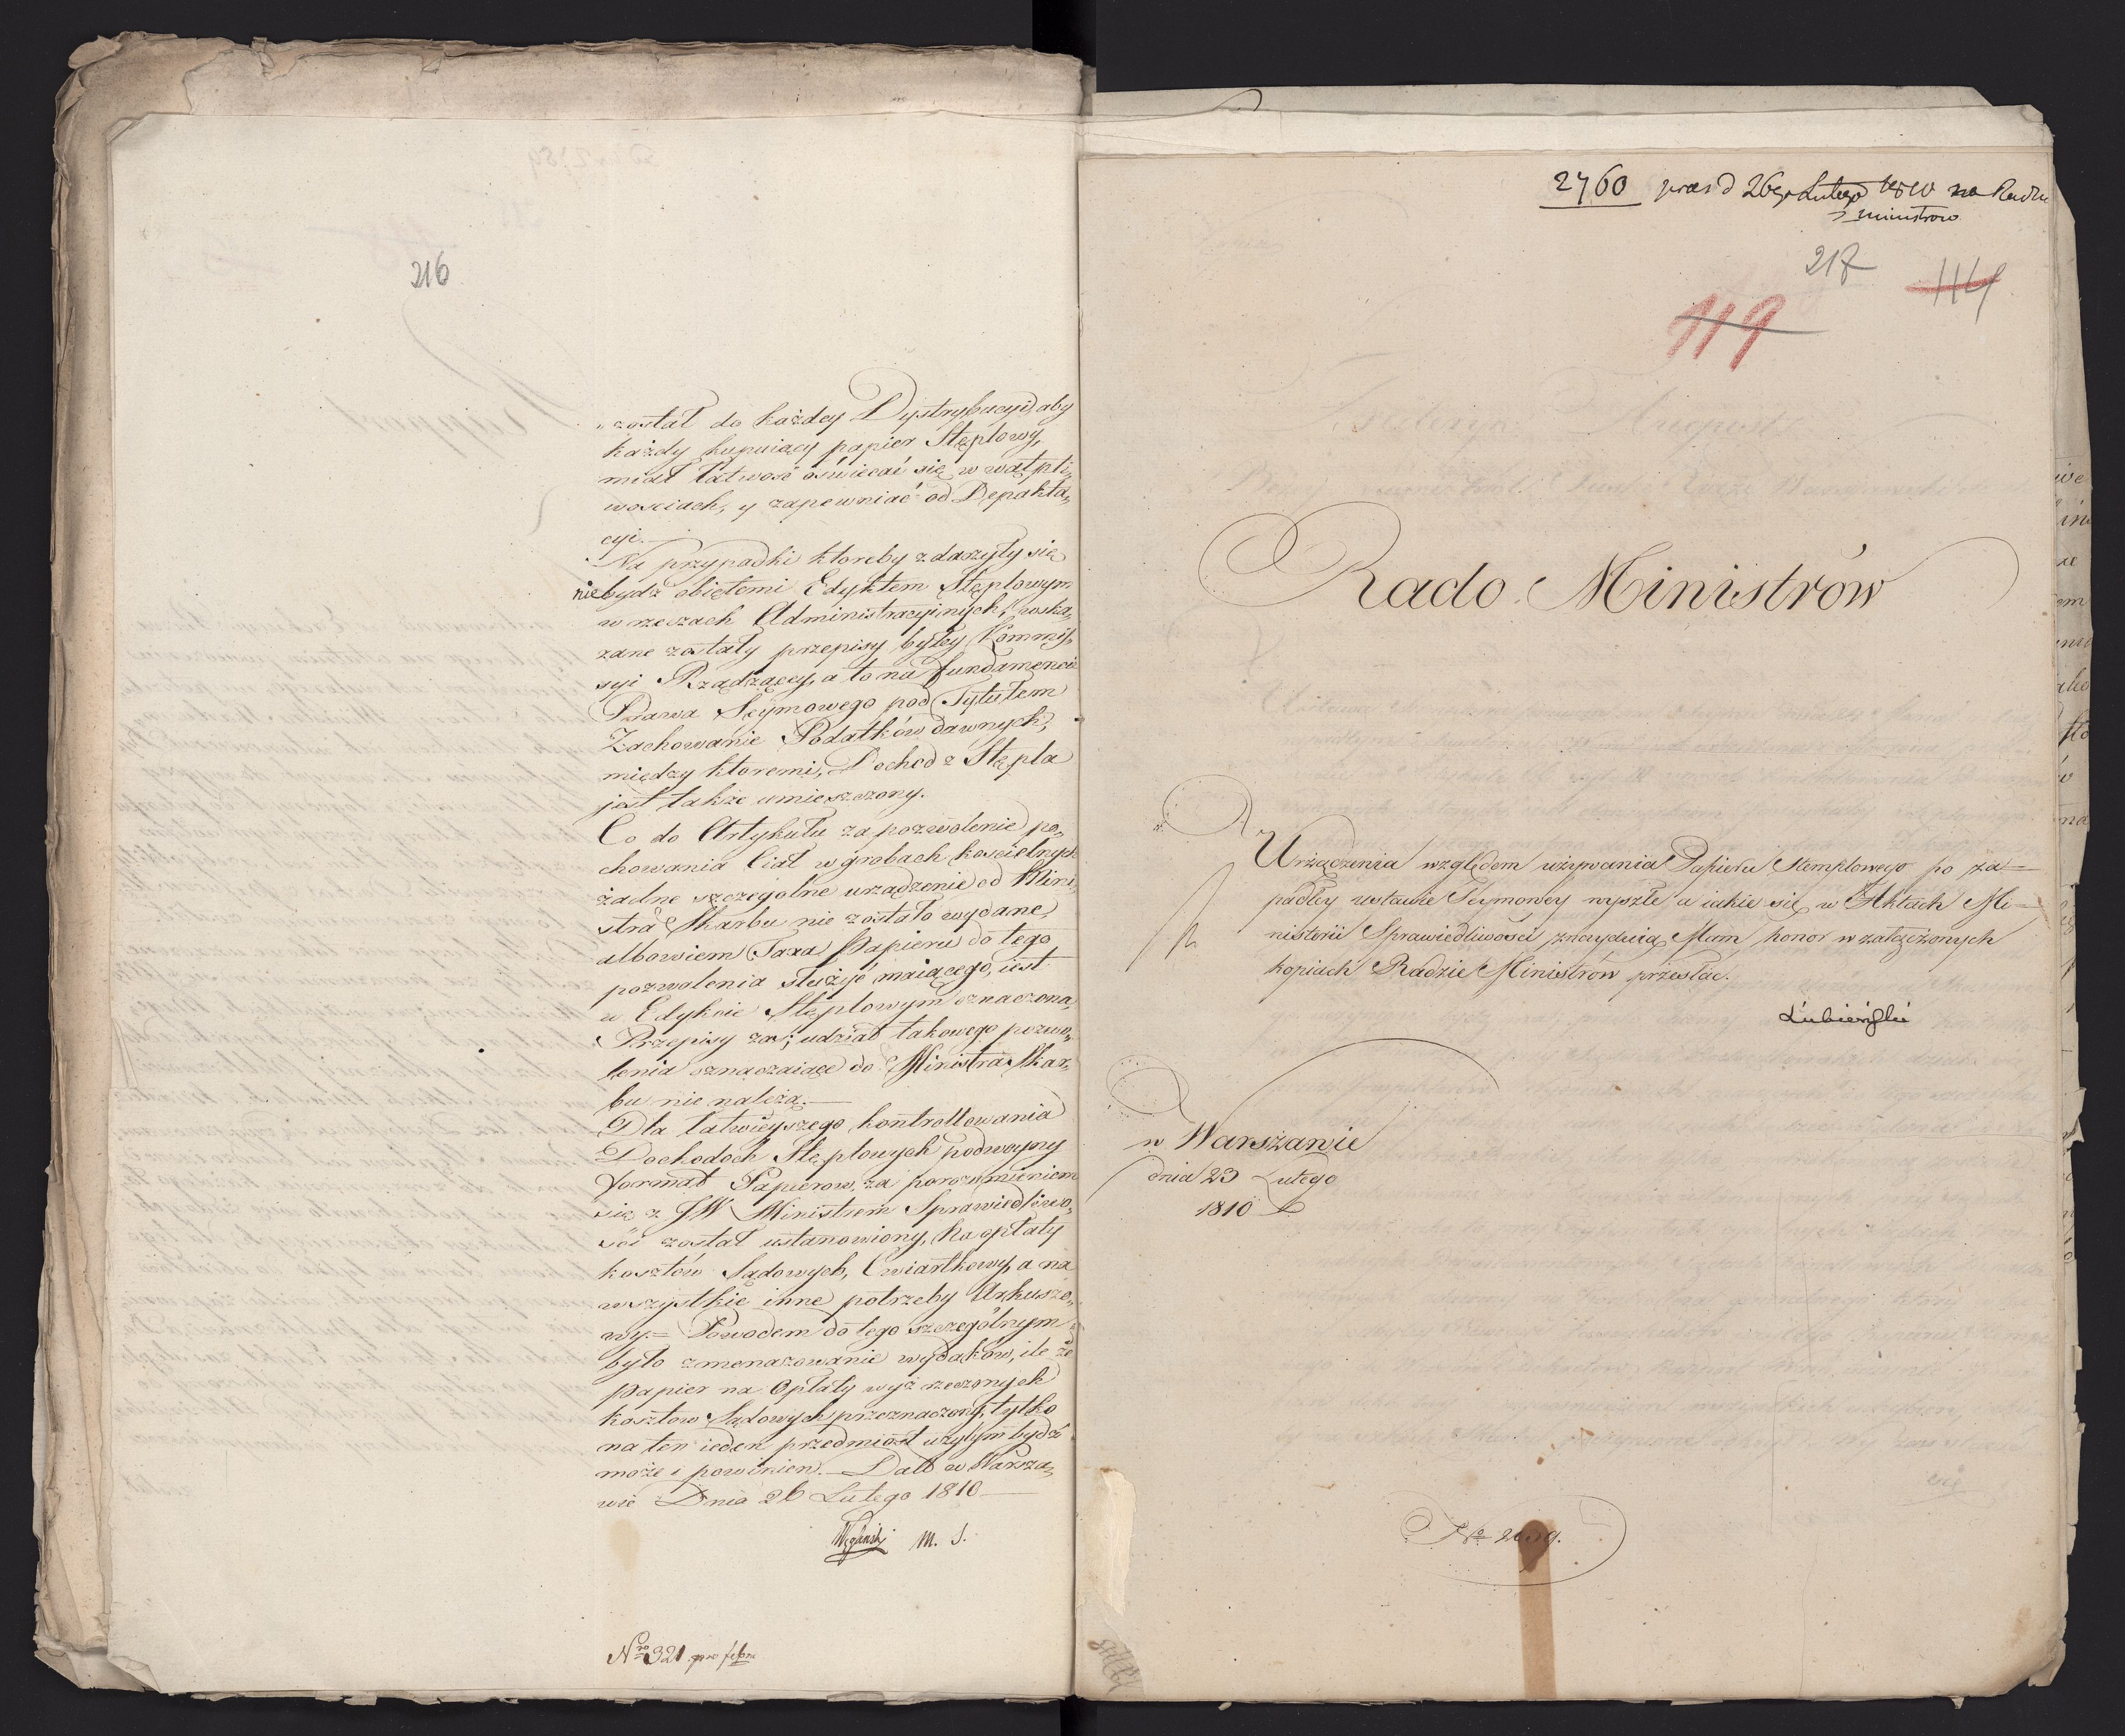 216
został do każdey Dystrybucyi, aby
każdy kupuiący papier Stęplowy,
miał łatwość oświecać się w wątpli„
wościach, y zapewniać od Depakta„
cyi.—
Na przypadki ktoreby zdarzyły się
niebydź obiętemi Edyktem Stęplowym
w rzeczach Administracyinych, wska„
zane zostały przepisy byłey Kommis„
syi Rządzącey, a to na fundamencie
Prawa Seymowego pod Tytułem
Zachowanie Podatków dawnych,
między ktoremi, Dochod z Stępla
jest także umieszczony.
Co do Artykułu za pozwolenie po„
chowania Ciał w grobach kościelnych
żadne szczegolne urządzenie od Mini„
stra Skarbu nie zostało wydane,
albowiem Taxa Papieru do tego
pozwolenia służyć maiącego, iest
w Edykcie Stęplowym oznaczona,
Przepisy zaś; udział takowego pozwo„
lenia oznaczaiące do Ministra Skar„
bu nie należą.—
Dla łatwieyszego kontrollowania
Dochodoch Stęplowych podwoyny
format Papierow, za porozumieniem
się z JW Ministrem Sprawiedliwo„
ści został ustanowiony, Na opłaty
kosztów Sądowych, Cwiartkowy, a na
wszystkie inne potrzeby Arkuszo„
wy.= Powodem do tego szczególnym
było zmenazowanie wydatków, ile że
papier na Opłaty wyż rzeczonych
kosztow Sądowych przeznaczony, tylko
na ten ieden przedmiot użytym bydź
może i powinien.— Datt w Warsza„
wie Dnia 26 Lutego 1810—
Węgleński M. S.
Nro 321 pro febru
2760 praes d 26go Lutego 1810 na Radzie
Ministrow
217
114
119
Rado Ministrów
Urządzenia względem używania Papieru Stemplowego po za=
padłey ustawie Seymowey wyszłe, a iakie się w Aktach Mi=
nisterii Sprawiedliwości znayduią, Mam honor w załączonych
kopiach Radzie Ministrów przesłać.
Łubieński
w Warszawie
dnia 23 Lutego
1810